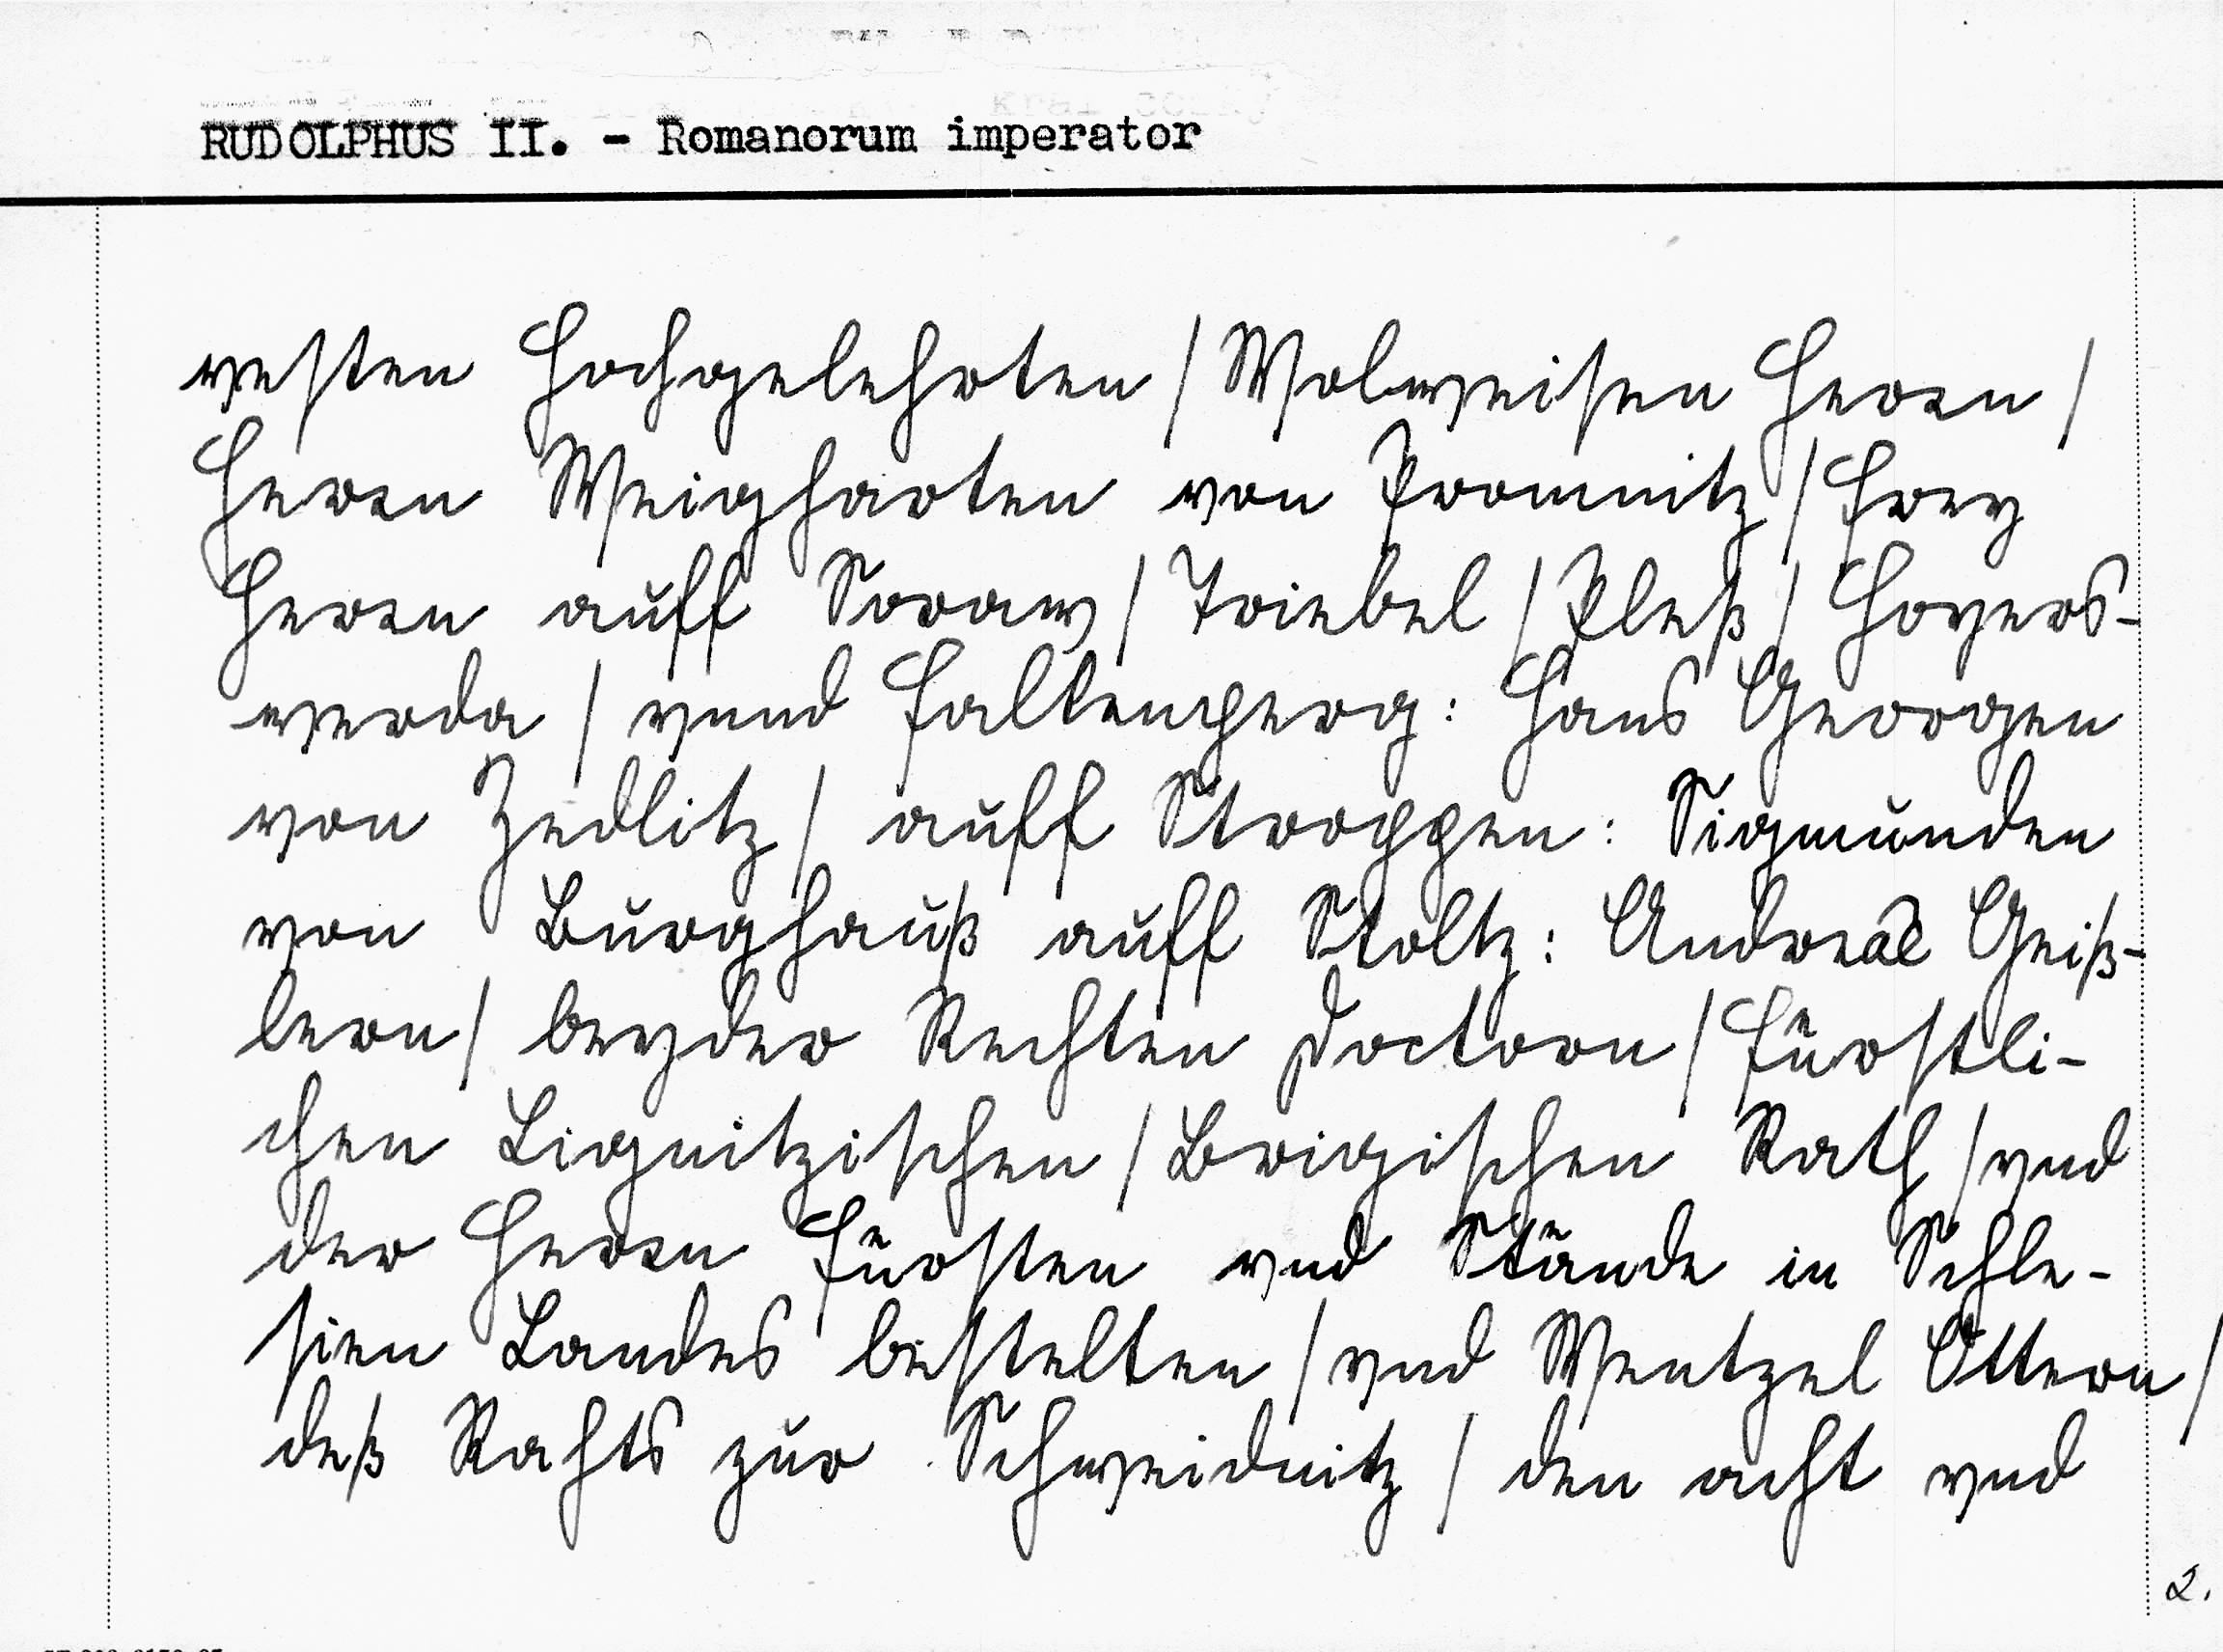 RUDOLPHUS II. - Romanorum imperator
vesten Hochgelehrten / Wolweisen Herꝛn /
Herꝛn Weigharten von Promnitz / Frey
Herꝛn auff Soraw / Triebel / Pleß / Hoyers-
werda / vnnd Falkenperg: Hans Georgen
von Zedlitz / auff Stroppen: Sigmunden
von Burghauß auff Stoltz: Andreæ Geiß-
lern / beyder Rechten Doctorn / Fürstli-
chen Lignitzischen / Brigischen Rath / vnd
der Herꝛn Fürsten vnd Stände in Schle-
sien Landes bestelten / vnd Wentzel Ottern /
deß Rahts zur Schweidnitz / den acht vnd
2.